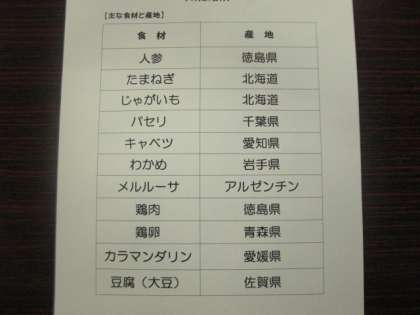 【主な食材と産地】
食 材 産 地
人参 徳島県
たまねぎ 北海道
じゃがいも 北海道
パセリ 千葉県
キャベツ 愛知県
わかめ 岩手県
メルルーサ アルゼンチン
鶏肉 徳島県
鶏卵 青森県
カラマンダリン 愛媛県
豆腐（大豆） 佐賀県